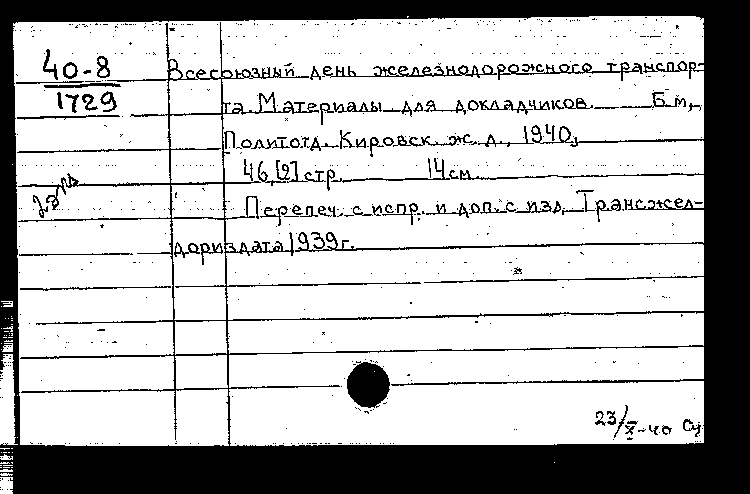 40-8
1729
Всесоюзный день железнодорожного транспор-
та. Материалы для докладчиков. Б.м.,
Политотд. Кировск. ж. д., 1940,
46,[2] стр. 14 см.
Перепеч. с испр. и доп. с изд. Трансжел-
дориздата 1939 г.
23/X-40 Су